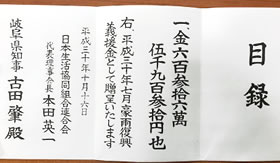 目録
一、金六百参拾六萬
伍千九百参拾円也
右、平成三十年七月豪雨復興
義援金として贈呈いたします
平成三十年十月十六日
日本生活協同組合連合会
代表理事会長 本田英一
岐阜県知事 古田肇殿